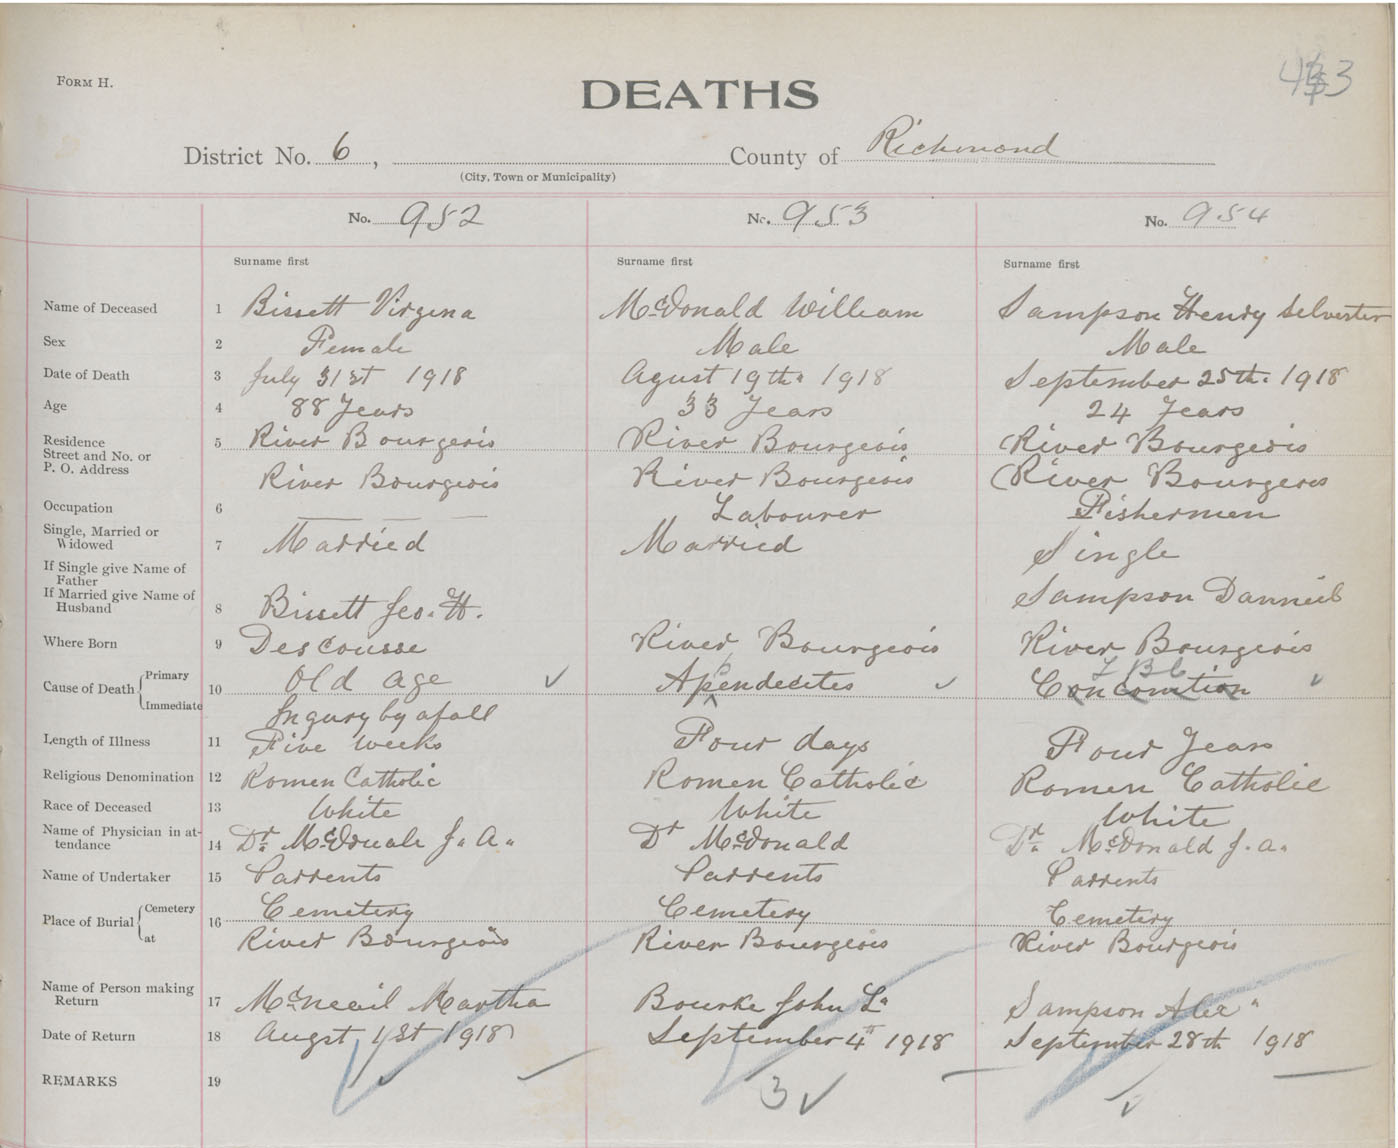 FORM H.
DEATHS
District No. 6, County of Richmond
(City, Town or Municipality)
No. 952 No. 953 No. 954
Surname first Surname first Surname first
Name of Deceased 1 Bissett Virgena McDonald William Sampson Henry Selverter
Sex 2 Female Male Male
Date of Death 3 July 31st 1918 Agust 19th. 1918 September 25th. 1918
Age 4 88 Years 33 Years 24 Years
Residence 5 River Bourgeois River Bourgeois River Bourgeois
Street and No. or
P. O. Address River Bourgeois River Bourgeois River Bourgeois
Occupation 6 Labourer Fishermen
Single, Married or
Widowed 7 Married Married Single
If Single give Name of
Father
If Married give Name of Sampson Danniel
Husband 8 Bissett Geo. H.
Where Born 9 Descousse River Bourgeois River Bourgeois
Cause of Death Primary 10 Old Age Appendecites T B C
Immediate Ingury by a fall
Length of Illness 11 Five weeks Four days Four Years
Religious Denomination 12 Romen Catholic Romen Catholic Romen Catholic
Race of Deceased 13 White White White
Name of Physician in at-
tendance 14 Dr. McDonale J. A. Dr McDonald Dr. McDonald J. A.
Name of Undertaker 15 Parrents Parrents Parrents
Place of Burial Cemetery 16 Cemetery Cemetery Cemetery
at River Bourgeois River Bourgeois River Bourgeois
Name of Person making
Return 17 McNeeil Martha Bourke John L. Sampson Alex
Date of Return 18 Augst 1st 1918 September 4 1918 September 28th 1918
REMARKS 19 3